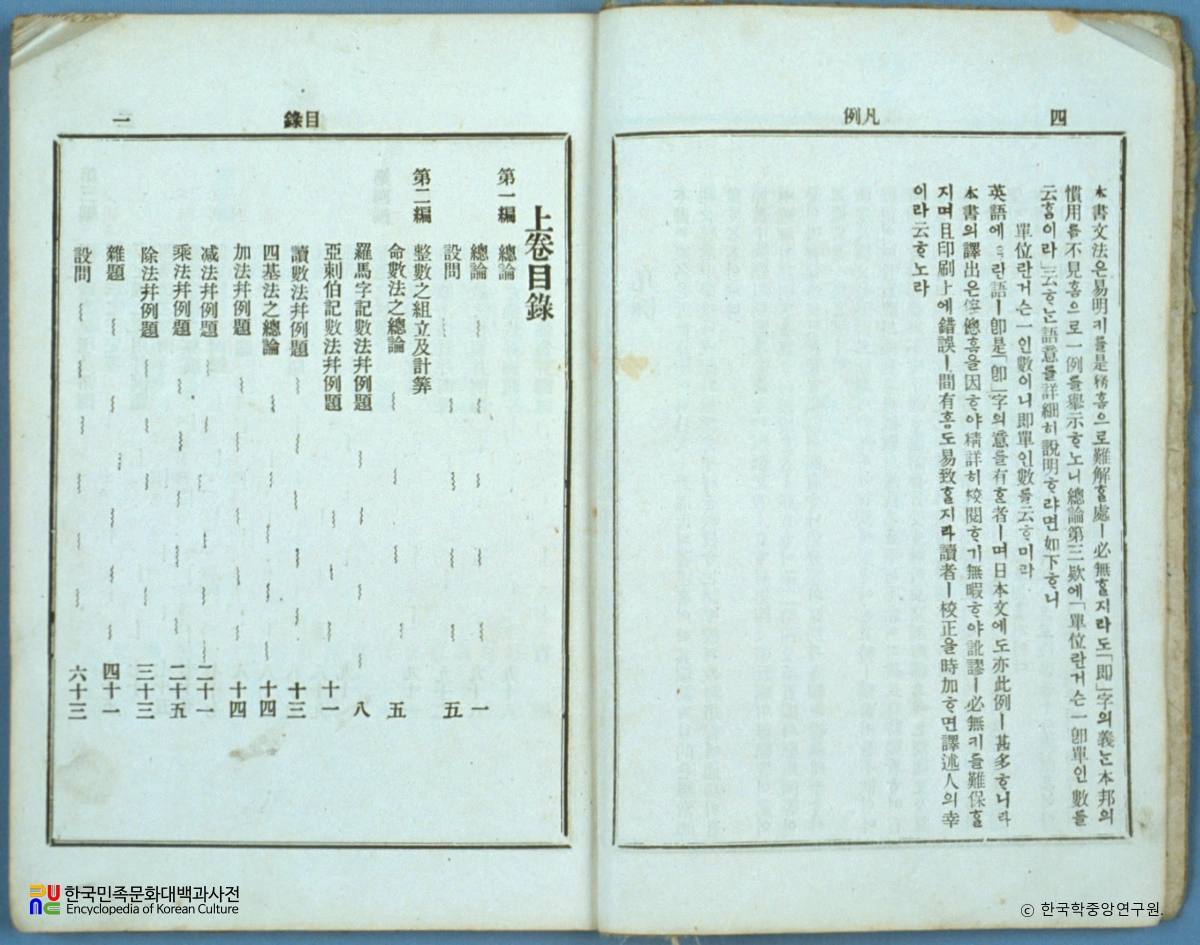 四
凡例
本書文法은易明키를是務홈으로難解홀處ㅣ必無홀지라도「即」字의義는本邦의
慣用을不見홈으로一例를擧示ᄒᆞ노니總論第三欵에「單位란거슨一卽單인數를
云홈이라」云ᄒᆞᄂᆞᆫ語意를詳細히說明ᄒᆞ랴면如下ᄒᆞ니
單位란거슨一인數이니即單인數를云ᄒᆞ미라
英語에 린語ㅣ卽是「卽」字의意를有ᄒᆞᆫ者ㅣ며日本文에도亦此例ㅣ甚多ᄒᆞ니라
本書의譯出은倥傯홈을因ᄒᆞ야精詳히校閱ᄒᆞ기無暇ᄒᆞ야訛謬ㅣ必無키를難保ᄒᆞᆯ
지며且印刷上에錯誤ㅣ間有홈도易致ᄒᆞᆯ지라讀者ㅣ校正을時加ᄒᆞ면譯述人의幸
이라云ᄒᆞ노라
目錄
一
上卷目錄
第一編 總論
總論 一
設問 五
第二編 整數之組立及計筭
命數法之總論 五
羅馬字記數法幷例題 八
亞剌伯記數法幷例題 十一
讀數法幷例題 十三
四基法之總論 十四
加法幷例題 十四
减法幷例題 二十一
乘法幷例題 二十五
除法幷例題 三十三
雜題 四十一
設問 六十三
한국민족문화대백과사전
Encyclopedia of Korean Culture
© 한국학중앙연구원